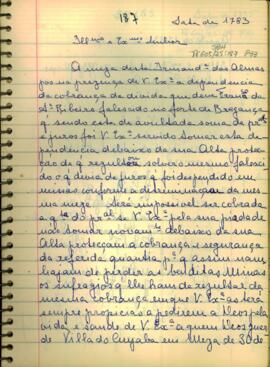 187
Data de 1783
Illmo e Exmo Senhor
A meza desta Irmand.e das Almas
pos na prezença de V. Exa a dependencia
da cobrança da divida que deve Franco da
Sa Ribeiro falescido no forte de Bragança
q' sendo esta de avultada soma de pral
e juros foi V. Exa servido tomar esta de-
pendencia debaixo da sua Alta prote-
cção de q' rezultou o mesmo falesci-
do o q' devia de juros q' foi despendido em
missas conforme a determinação da mes-
ma meza será impossivel ser cobrada
a q.ta do pral se V. Exa pela sua piedade
não tomar novam.te debaixo da sua
Alta protecçam a cobrança e segurança
da referida quantia p.a q' assim nam
hajam de perder as benditas Almas
os sufragios q' lhe ham de rezultar da
mesma cobrança em que V. Exa as terá
sempre propicias a pedirem a Deos pela
vida e saude de V. Exa a quem Deos gue
de Villa do Cuyaba em Meza de 30 de